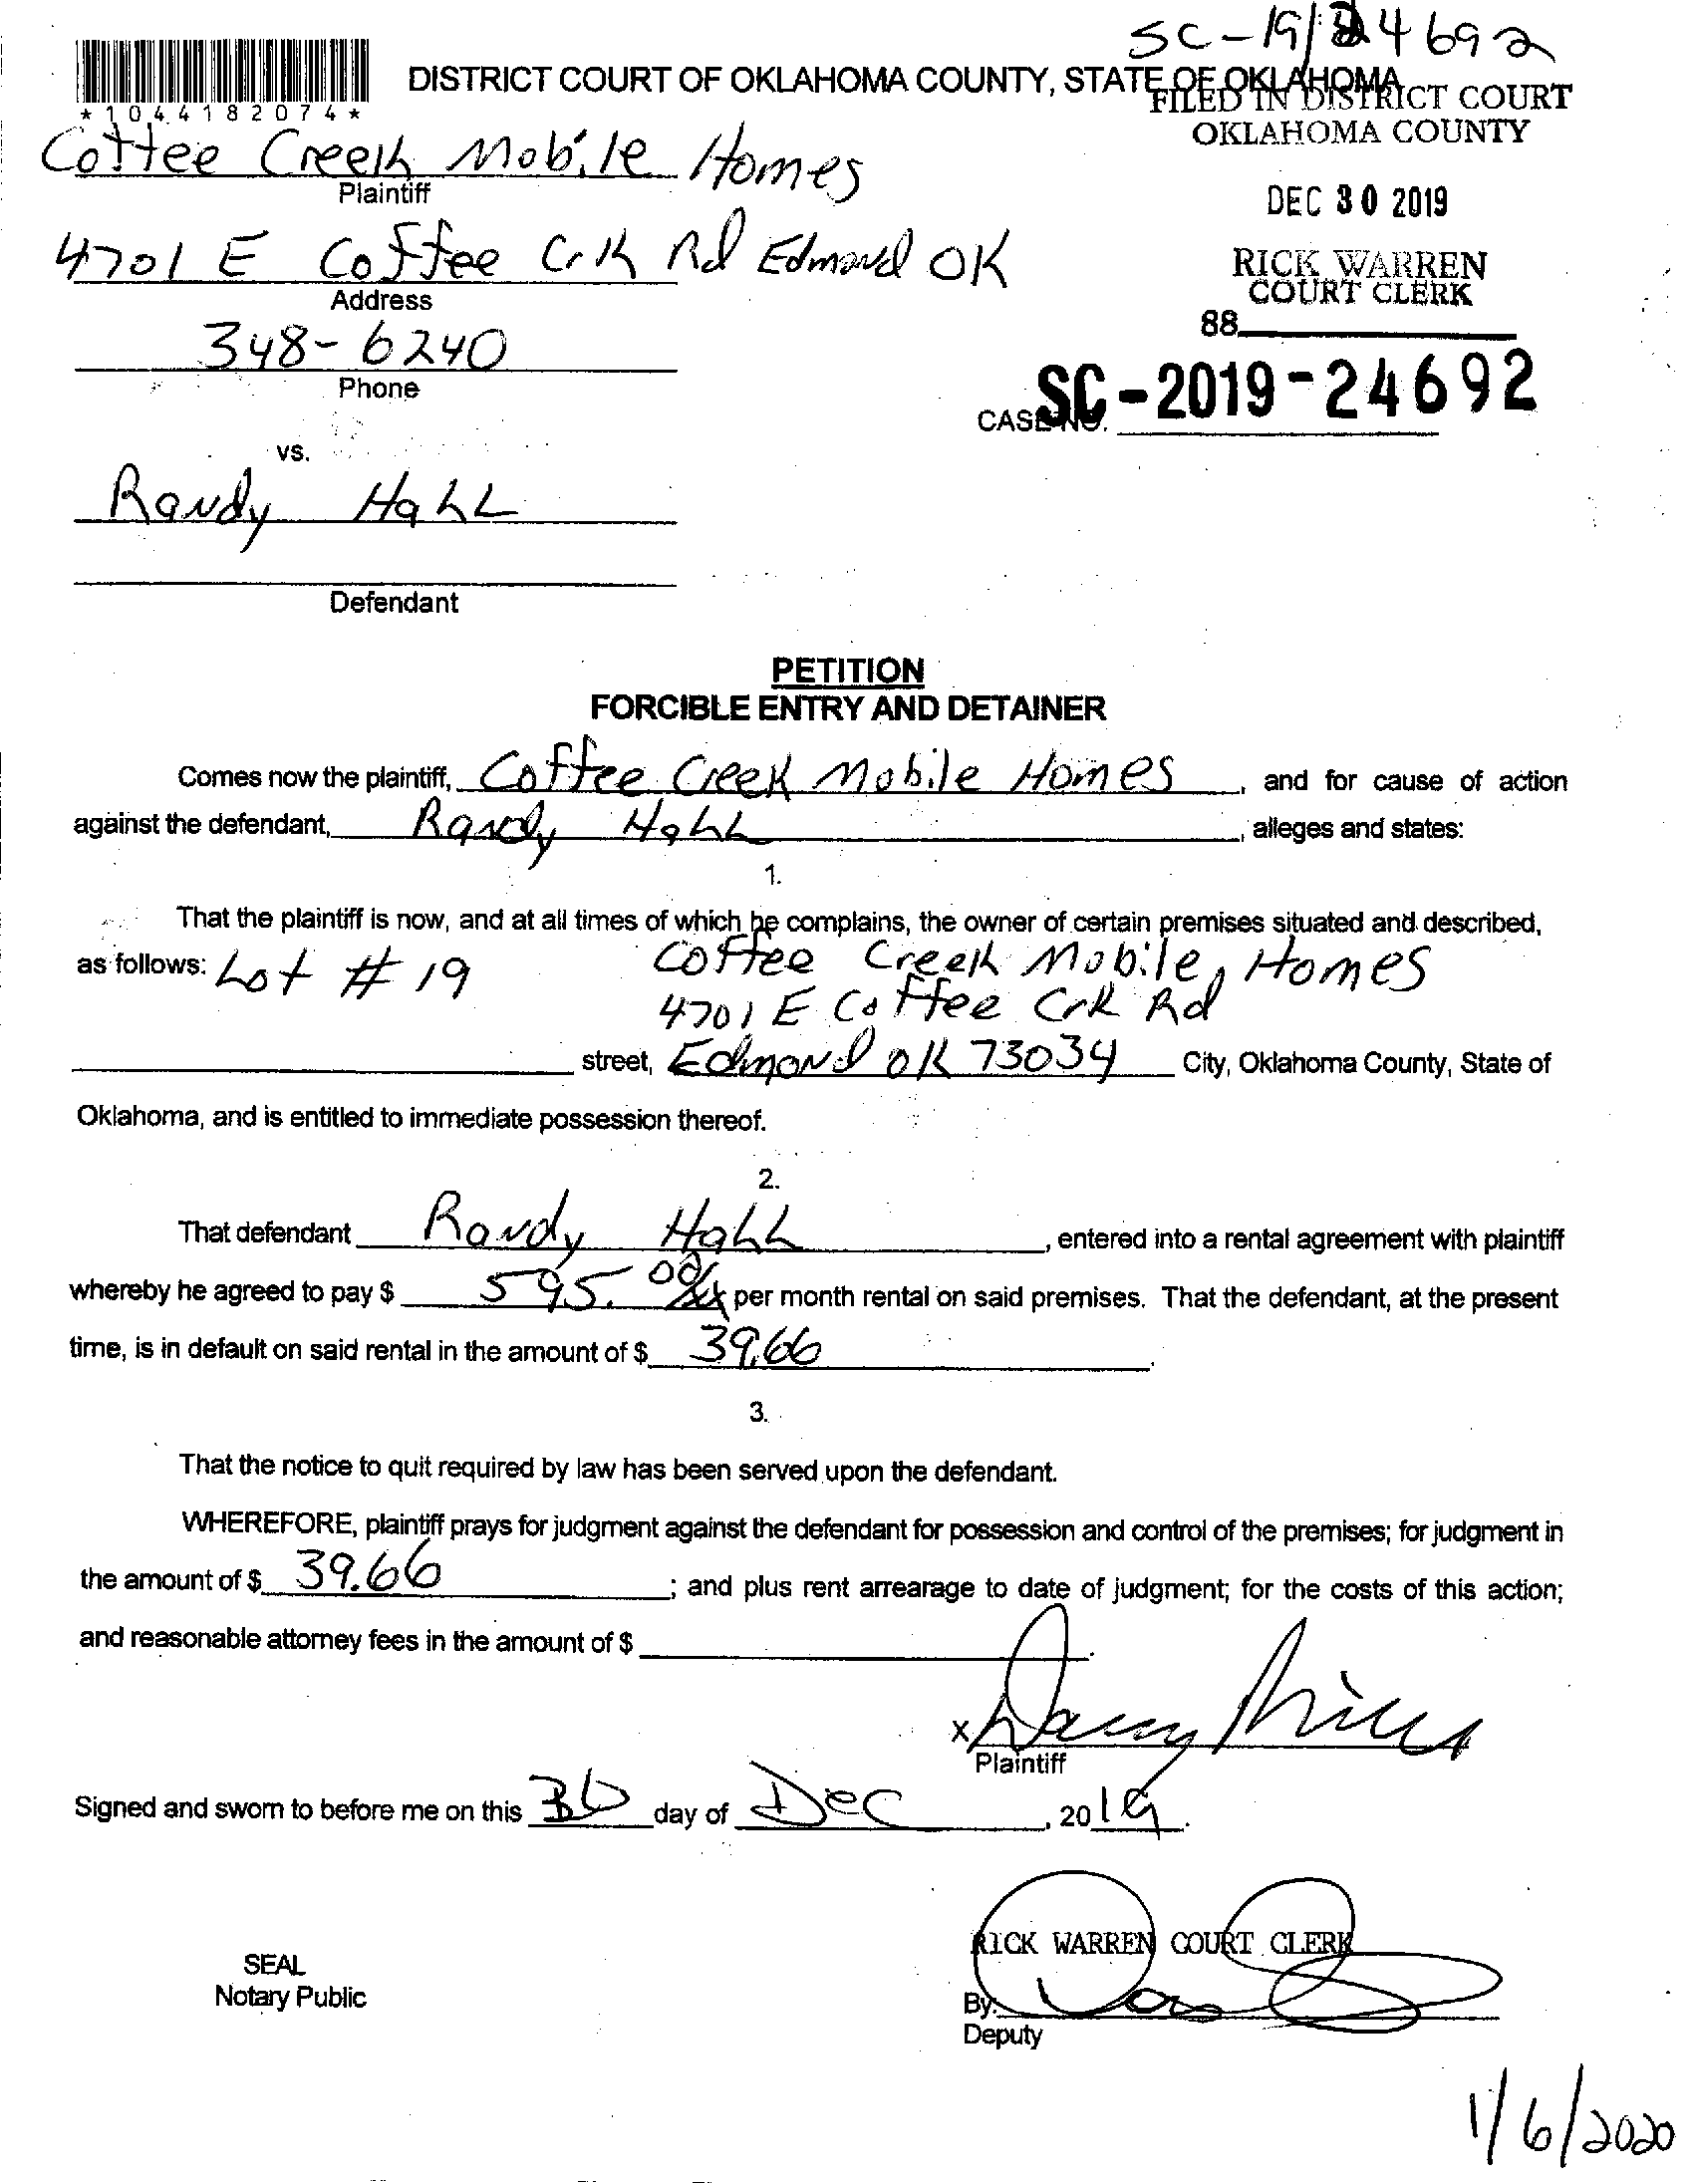 SC-19/24692
DISTRICT COURT OF OKLAHOMA COUNTY, STATE OF OKLAHOMA
*1044182074*
FILED IN DISTRICT COURT
OKLAHOMA COUNTY
Coffee Creek Mobile Homes
Plaintiff
DEC 30 2019
4701 E Coffee Crk Rd Edmond OK
Address
RICK WARREN
COURT CLERK
348-6240
Phone
88
CASE NO. SC-2019-24692
vs.
Randy Hall
Defendant
PETITION
FORCIBLE ENTRY AND DETAINER
Comes now the plaintiff, Coffee Creek Mobile Homes, and for cause of action
against the defendant, Randy Hall, alleges and states:
1.
That the plaintiff is now, and at all times of which he complains, the owner of certain premises situated and described,
as follows: Lot # 19 Coffee Creek Mobile Homes
4701 E Coffee Crk Rd
street, Edmond OK 73034 City, Oklahoma County, State of
Oklahoma, and is entitled to immediate possession thereof.
2.
That defendant Randy Hall, entered into a rental agreement with plaintiff
whereby he agreed to pay $ 595. 00/xx per month rental on said premises. That the defendant, at the present
time, is in default on said rental in the amount of $ 39.66.
3.
That the notice to quit required by law has been served upon the defendant.
WHEREFORE, plaintiff prays for judgment against the defendant for possession and control of the premises; for judgment in
the amount of $ 39.66; and plus rent arrearage to date of judgment; for the costs of this action;
and reasonable attorney fees in the amount of $.
x
Plaintiff
Signed and sworn to before me on this 30 day of Dec, 2019.
RICK WARREN COURT CLERK
SEAL
Notary Public
By:
Deputy
1/6/2020